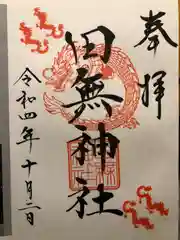 奉拝
田無神社
令和四年十月二日